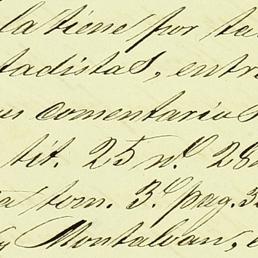 la tiene por ta
tadistas, entr
us comentarios
tit. 25 n.º 28
a tom. 3.º pag. 3
y Montalvan, e